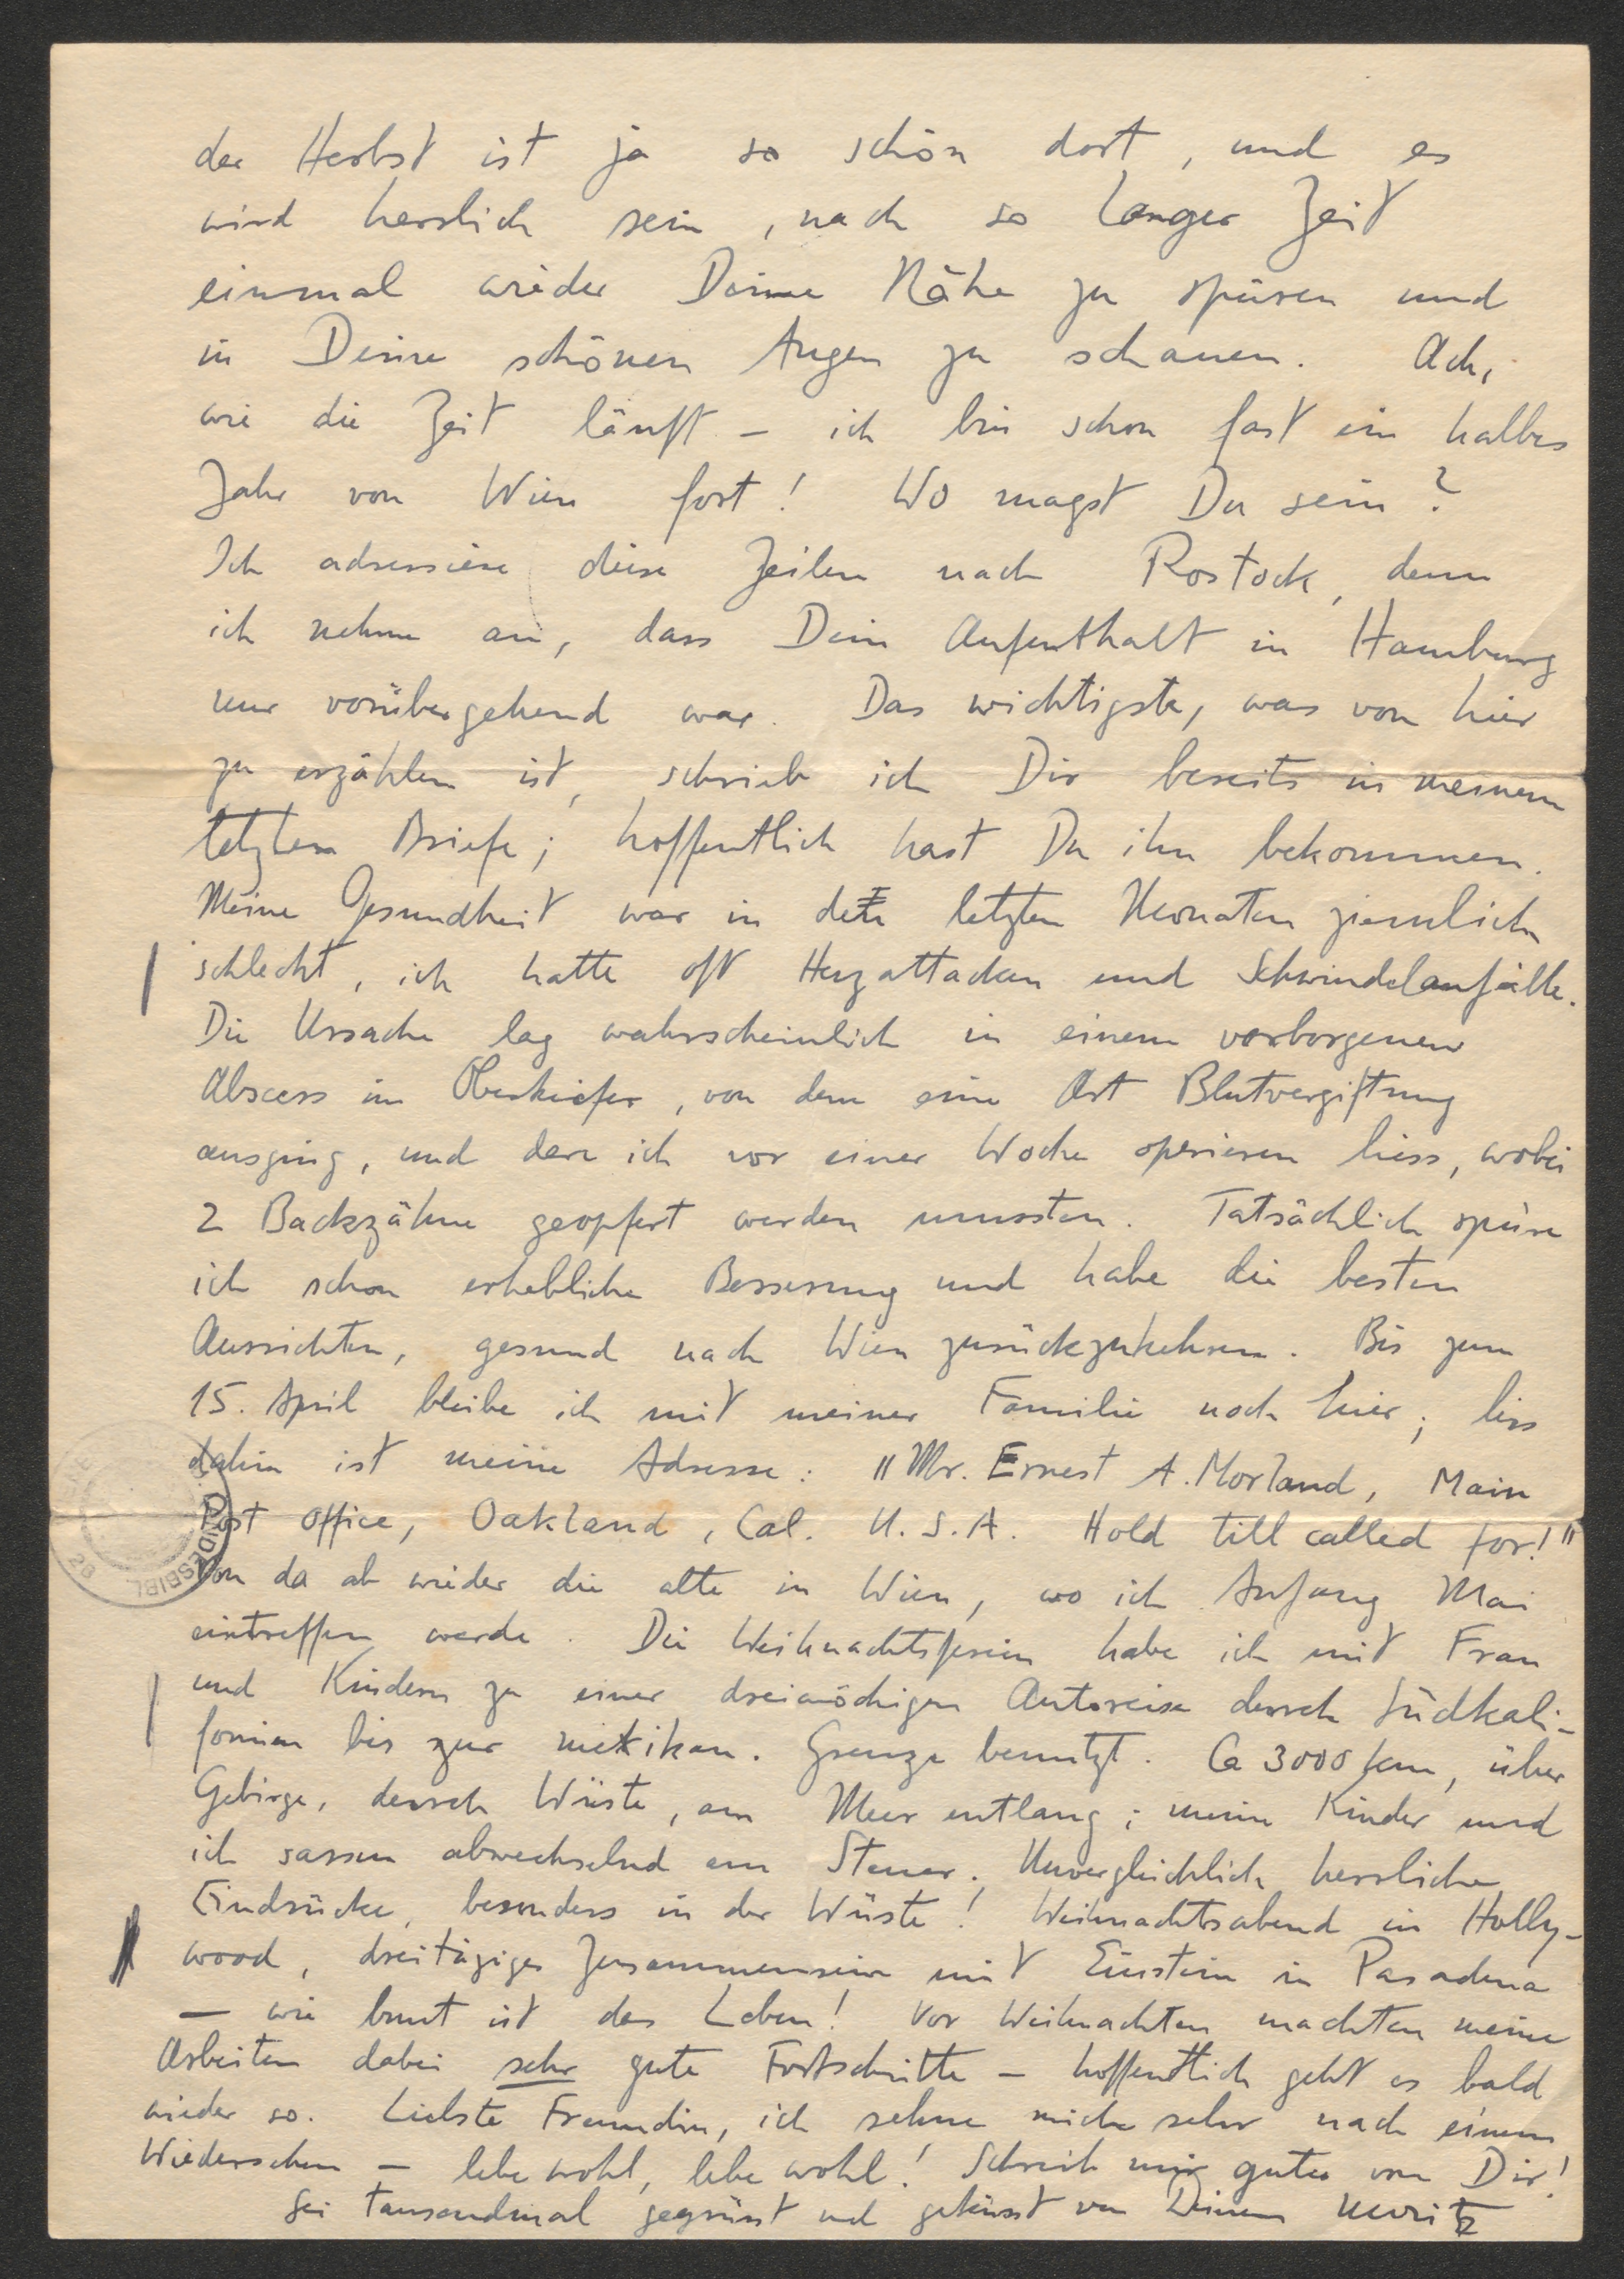 der Herbst ist ja so schön dort, und es
wird herrlich sein, nach so langer Zeit
einmal wieder Deine Nähe zu spüren und
in Deine schönen Augen zu schauen. Ach,
wie die Zeit läuft – ich bin schon fast ein halbes
Jahr von Wien fort! Wo magst Du sein?
Ich adressiere diese Zeilen nach Rostock, denn
ich nehme an, dass Dein Aufenthalt in Hamburg
nur vorübergehend war. Das wichtigste, was von hier
zu erzählen ist, schrieb ich Dir bereits in meinem
letzten Briefe; hoffentlich hast Du ihn bekommen.
Meine Gesundheit war in den letzten Monaten ziemlich
schlecht, ich hatte oft Herzattacken und Schwindelanfälle.
Die Ursache lag wahrscheinlich in einem verborgenen
Abscess im Oberkiefer, von dem eine Art Blutvergiftung
ausging, und den ich vor einer Woche operieren liess, wobei
2 Backzähne geopfert werden mussten. Tatsächlich spüre
ich schon erhebliche Besserung und habe die besten
Aussichten, gesund nach Wien zurückzukehren. Bis zum
15. April bleibe ich mit meiner Familie noch hier; bis
dahin ist meine Adresse: "Mr. Ernest A. Morland, Main
Post office, Oakland, Cal. U.S.A. Hold till called for!"
Von da ab wieder die alte in Wien, wo ich Anfang Mai
eintreffen werde. Die Weihnachtsferien habe ich mit Frau
und Kindern zu einer dreiwöchigen Autoreise durch Südkali-
fornien bis zur mexikan. Grenze benutzt. Ca 3000 km, über
Gebirge, durch Wüste, am Meer entlang; meine Kinder und
ich sassen abwechselnd am Steuer. Unvergleichlich herrliche
Eindrücke, besonders in der Wüste! Weihnachtsabend in Holly-
wood, dreitägiges Zusammensein mit Einstein in Pasadena
– wie bunt ist das Leben! Vor Weihnachten machten meine
Arbeiten dabei sehr gute Fortschritte – hoffentlich geht es bald
wieder so. Liebste Freundin, ich sehne mich sehr nach einem
Wiedersehen – lebe wohl, lebe wohl! Schreib mir gutes von Dir!
Sei tausendmal gegrüsst und geküsst von Deinem Moritz